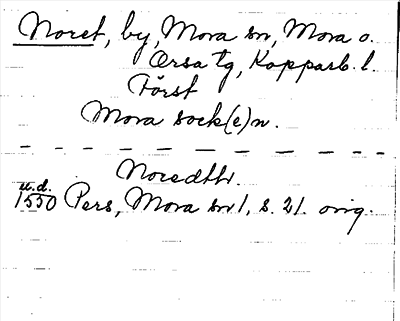 Noret, by, Mora sn, Mora o.
Orsa tg, Kopparb. l.
Först
Mora sock(e)n.
Noredhr.
u.d.
1550 Pers, Mora sn 1, s. 21. orig.